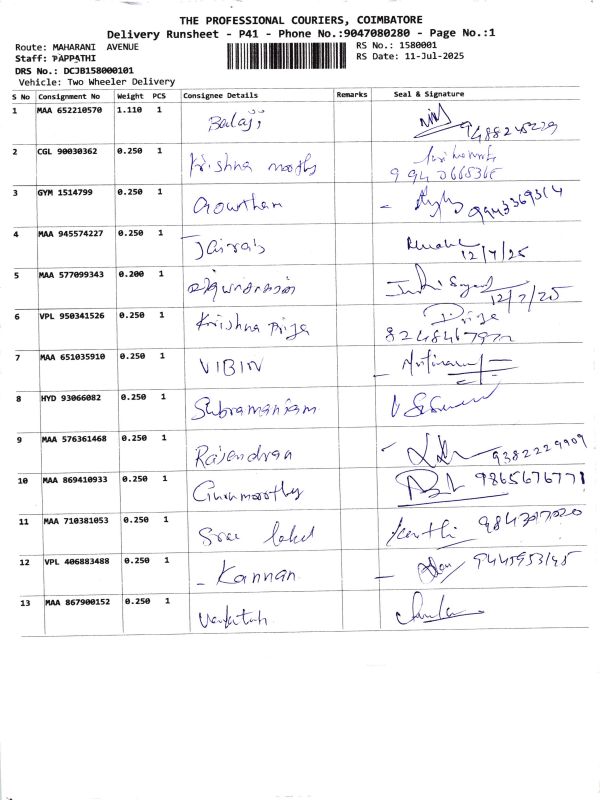 THE PROFESSIONAL COURIERS, COIMBATORE
Delivery Runsheet - P41 - Phone No.:9047080280 - Page No.:1
Route: MAHARANI AVENUE
RS No.: 1580001
Staff: PAPPATHI
RS Date: 11-Jul-2025
DRS No.: DCJB158000101
Vehicle: Two Wheeler Delivery
S No Consignment No Weight PCS Consignee Details Remarks Seal & Signature
1 MAA 652210570 1.110 1 Balaji 9488245229
2 CGL 90030362 0.250 1 Krishna moorthy
3 GYM 1514799 0.250 1 Gowtham 9943369314
4 MAA 945574227 0.250 1 Jairaj 12/7/25
5 MAA 577099343 0.200 1 12/7/25
6 VPL 950341526 0.250 1 Krishna Priya Priya
7 MAA 651035910 0.250 1 VIBIN
8 HYD 93066082 0.250 1 Subramaniam
9 MAA 576361468 0.250 1 Rajendran 9382229909
10 MAA 869410933 0.250 1 9865676771
11 MAA 710381053 0.250 1 Sree
12 VPL 406883488 0.250 1 - Kannan 9445953145
13 MAA 867900152 0.250 1